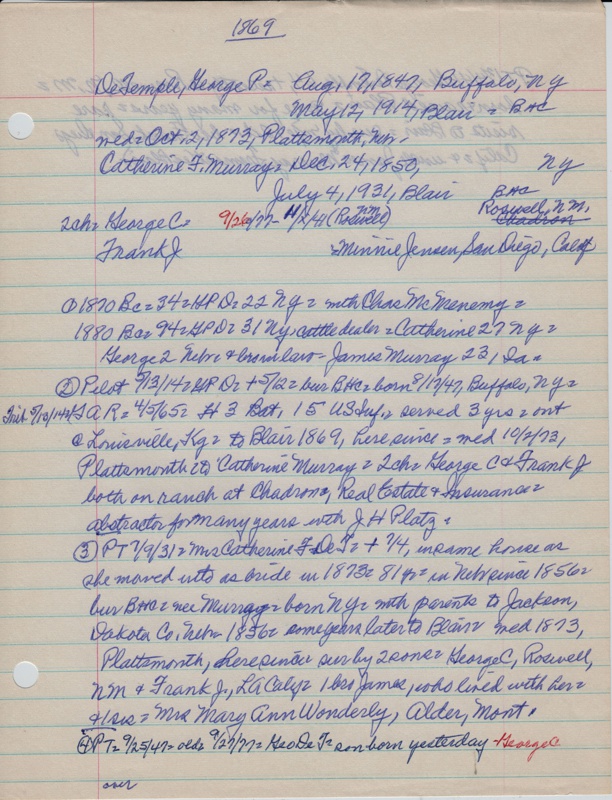 1869
DeTemple, George P = Aug, 17, 1847, Buffalo, Ny
May 12, 1914, Blair = BHC
wed = Oct. 2, 1873, Plattsmouth, Neb.
Catherine F. Murray = Dec. 24, 1850, Ny
July 4, 1931, Blair BHC
2ch = George C = 9/26/77 - 11/2/41 (Roswell NM) Roswell, N.M, Chadron
Frank J = Minnie Jensen, San Diego, Calif
① 1870 Bc = 34 = GP D = 22 Ny = with Chas McMenemy =
1880 Bc = 94 = GP D = 31 Ny, cattle dealer = Catherine 27 Ny =
George 2 Nebr & bro in law - James Murray 23, Ia =
② Pilot 5/13/14 = GP D = + 5/12 = bur BHC = born 8/17/47, Buffalo, Ny =
GAR = 4/5/65 = H 3 Bat, 15 US Inf, = served 3 yrs = out
@ Louisville, Ky = to Blair 1869, here since = wed 10/2/73,
Plattsmouth = to Catherine Murray = 2ch = George C & Frank J
both on ranch at Chadron, Real Estate & Insurance =
abstractor for many years with J H Platz =
③ PT 7/9/31 = Mrs Catherine F De T = + 7/4, in same house as
she moved into as bride in 1873 = 81 yr = in Nebr since 1856 =
bur BHC = nee Murray = born Ny = with parents to Jackson,
Dakota Co. Neb = 1856 = some years later to Blair = wed 1873,
Plattsmouth, here since sur by 2 sons = George C, Roswell,
NM & Frank J., LA Calif = 1 bro James, who lived with her =
& 1 sis = Mrs Mary Ann Wonderly, Alder, Mont.
④ PT = 9/25/47 = old = 9/27/77 = Geo De T = son born yesterday - George C
over